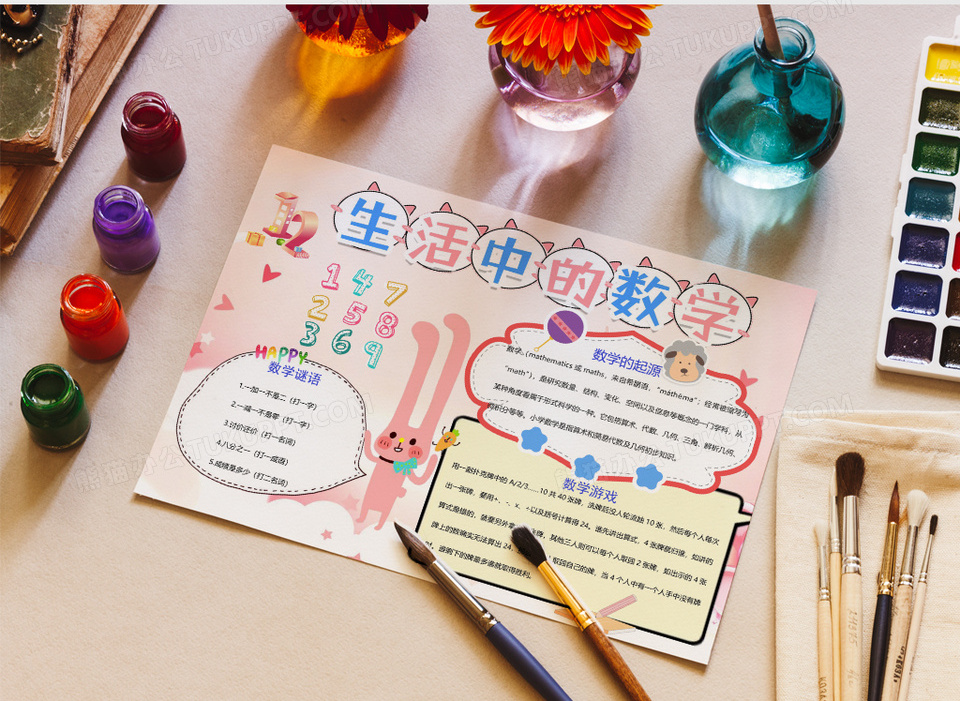 生活中的数学
1 4 7
2 5 8
3 6 9
HAPPY
数学谜语
1.一加一不是二（打一字）
2.一减一不是零（打一字）
3.讨价还价（打一名词）
4.八分之一（打一成语）
5.成绩是多少（打二名词）
数学的起源
数学，(mathematics 或 maths，来自希腊语，“máthēma”；经常被缩写为
“math”)，是研究数量、结构、变化、空间以及信息等概念的一门学科，从
某种角度看属于形式科学的一种。它包括算术、代数、几何、三角、解析几何、
微积分等等，小学数学是指算术和简易代数及几何初步知识。
数学游戏
用一副扑克牌中的 A/2/3……10 共 40 张牌，洗牌后没人轮流抽 10 张，然后每个人每次
出一张牌，要用+、-、×、÷以及括号计算得 24，谁先讲出算式，4 张牌就归谁，如讲的
算式是错的，就要另外拿 张牌，其他三人则可以每个人取回 2 张牌，如出示的 4 张
牌上的数确实无法算出 24， 取回自己的牌，当 4 个人中有一个人手中没有牌
时，游剩下的牌最多者就取得胜利。